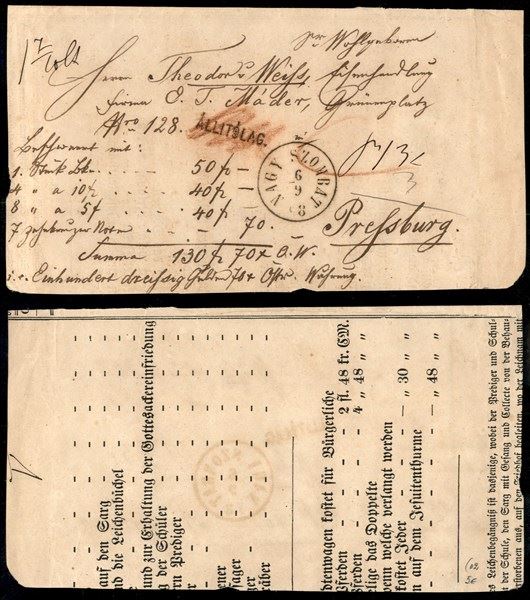 Sr Wohlgeboren
Herrn Theodor v Weiss, Eisenhandlung
Firma E. T. Mäder, Grünnplatz
Nro 128.
ÁLLITÓLAG.
Beschwert mit:
1. Stück 50 f –
4 " a 10 f 40 f –
8 " a 5 f 40 f –
7 zehnkreuzer Note - - - 70.
NAGY SZOMBAT
6
9
Pressburg.
Summa 130 f 70 x Ö. W.
Einhundert dreissig Gulden 70 x Östr. Währung.
auf den Sarg
nd die Leichenbüchel
und zur Erhaltung der Gottesackereinfriedung
g der Schüler
rn Prediger
ener
äger
räber
dtenwagen kostet für Bürgerliche
Pferden - - 2 fl. 48 kr. CM.
Pferden - - 4 " 48 " "
elige das Doppelte
enn welche verlangt werden
kostet Jeder - - — " 30 " "
n auf dem Jesuitenthurme - — " 48 " "
s Leichenbegängniß ist dasjenige, wobei der Prediger und Schul-
t der Schule, den Sarg mit Gesang und Collecte von der Behau-
storbenen aus, auf den Friedhof begleiten, wo der Leichnam mit